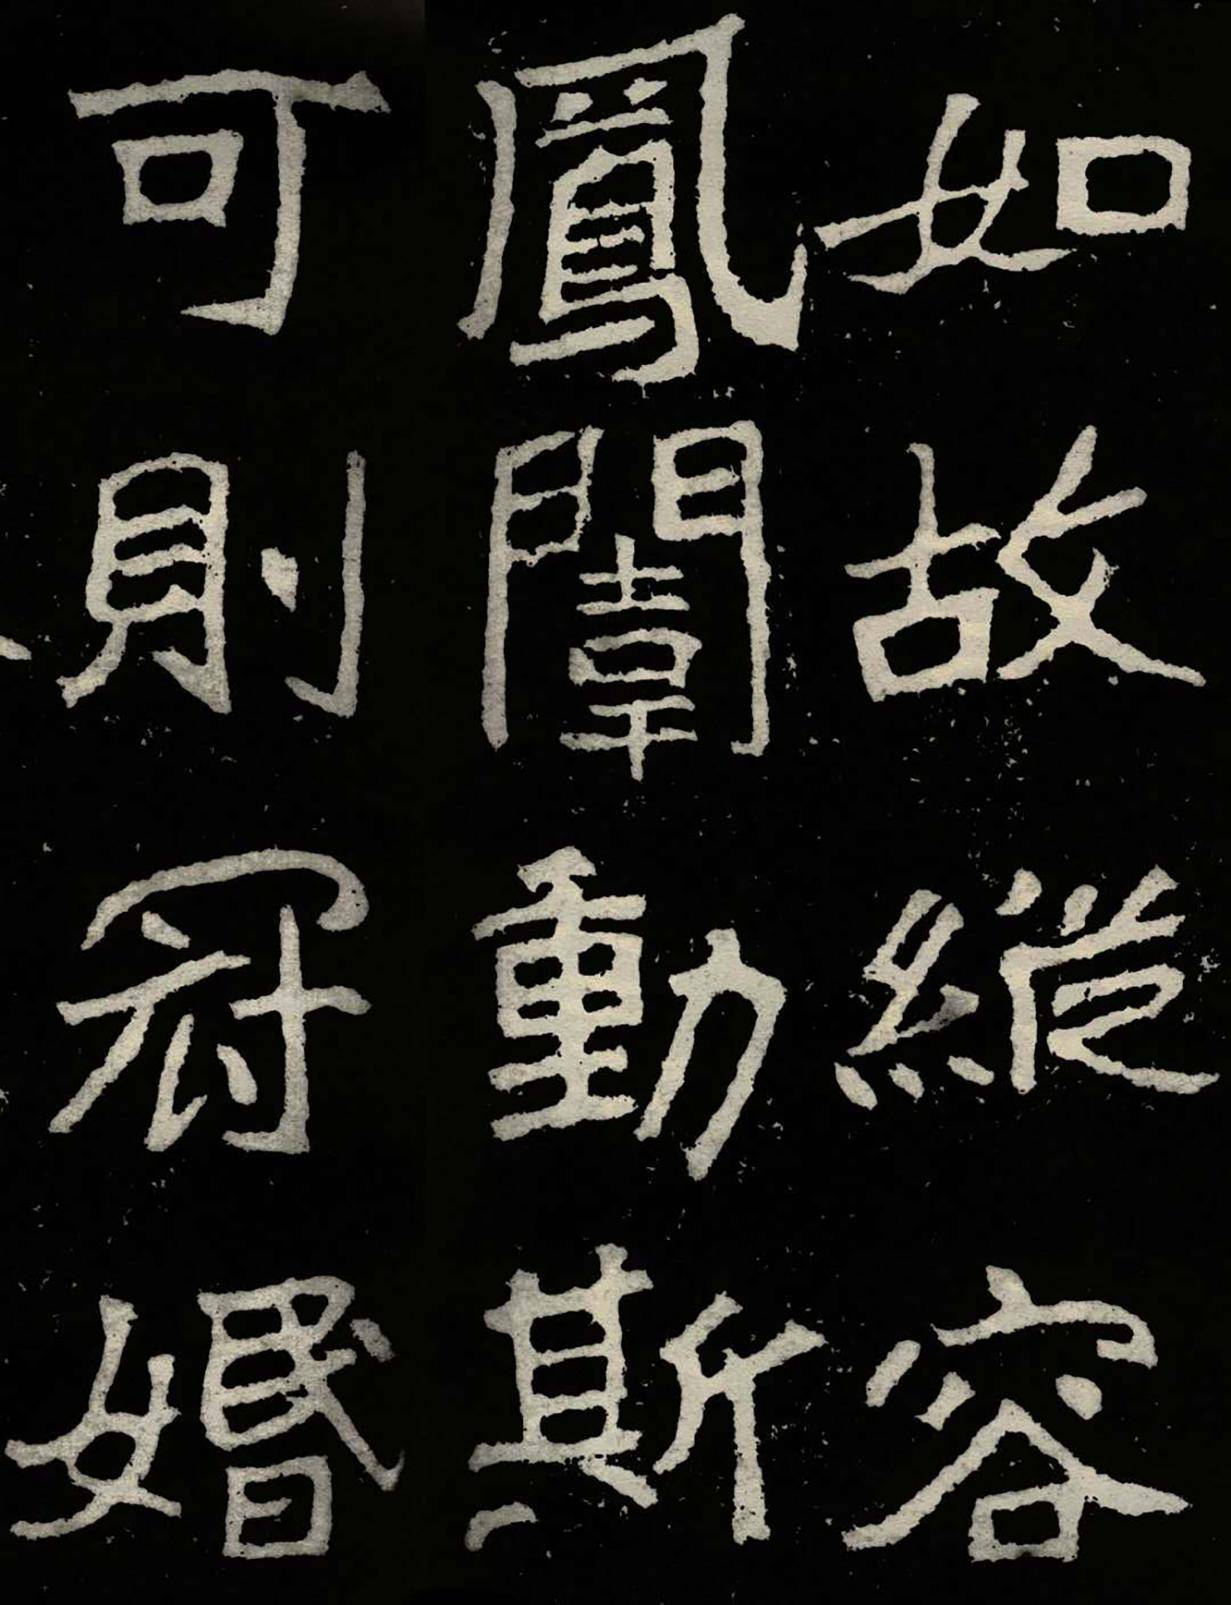 如故縱容
鳳闈動斯
可則冠婚